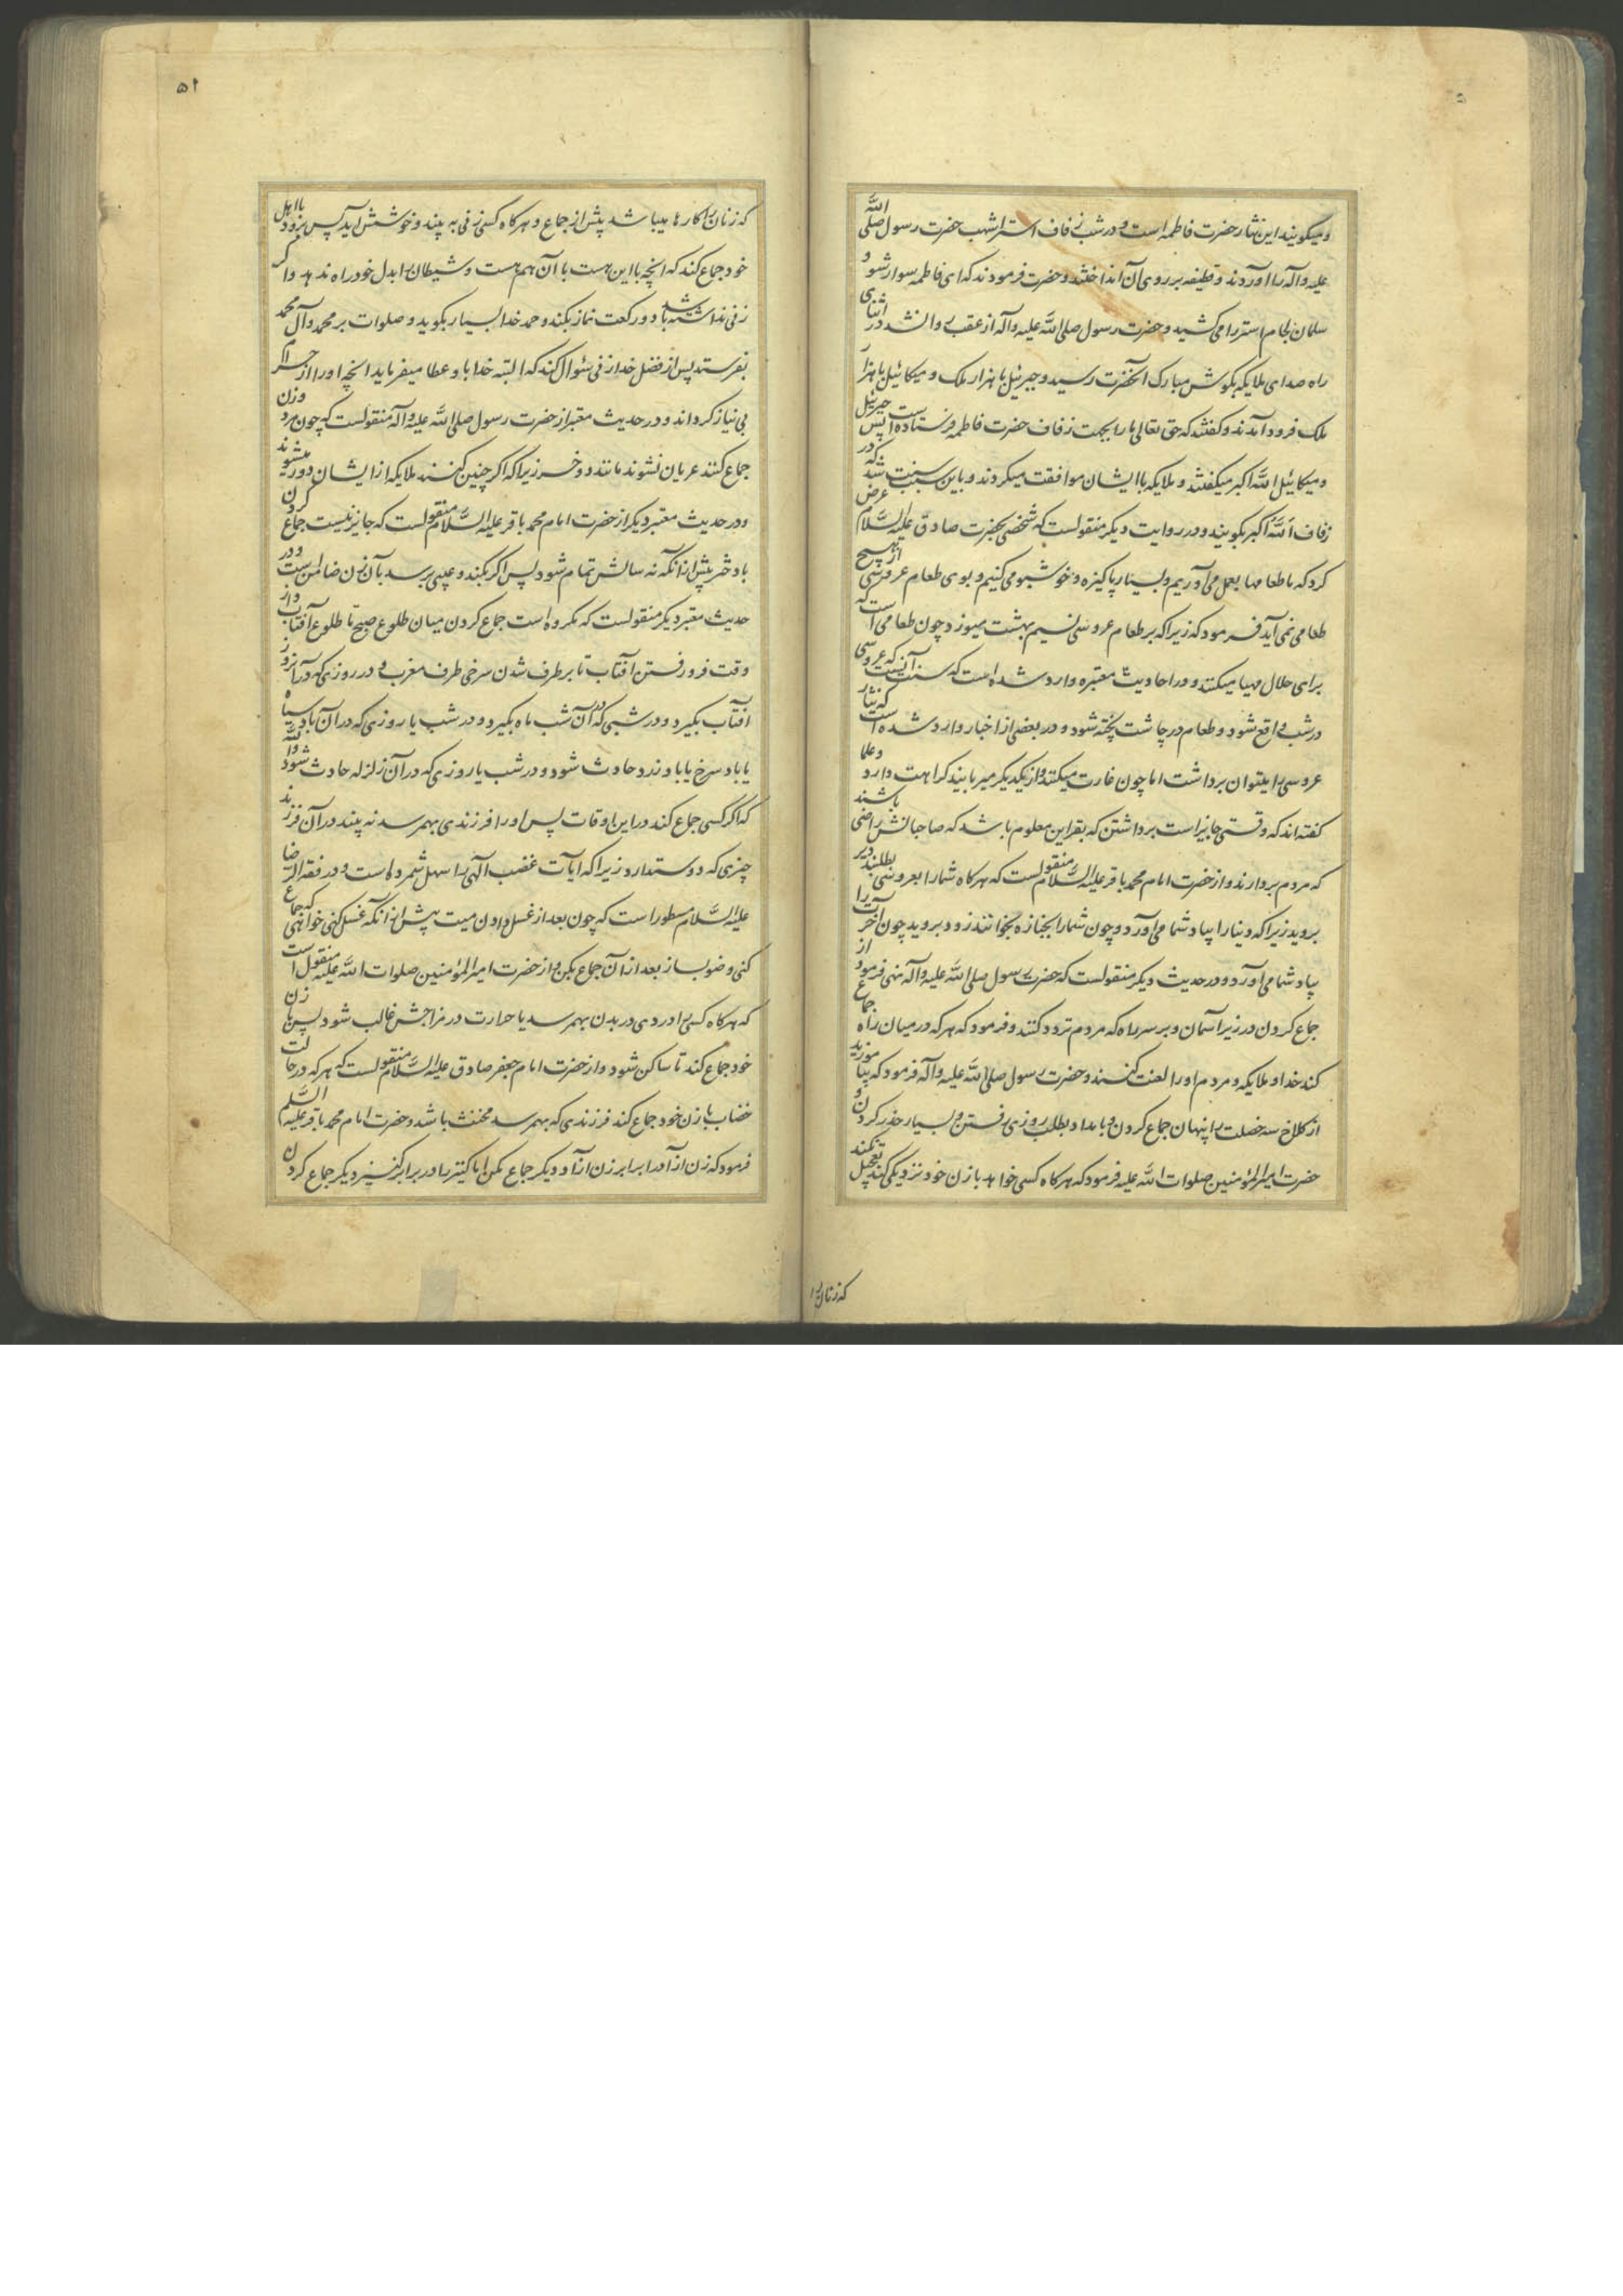 و میگویند این نثار حضرت فاطمه است و در شب زفاف استر اشهب حضرت رسول صلی الله
علیه و آله را آوردند و قطیفه بر روی آن انداختند و حضرت فرمودند که ای فاطمه سوار شو و
سلمان لجام استر را می کشید و حضرت رسول صلی الله علیه و آله از عقب روانه شد در اثنای
راه صدای ملایکه بگوش مبارک آنحضرت رسید و جبرئیل با هزار ملک و میکائیل با هزار
ملک فرود آمدند و گفتند که حق تعالی ما را بجهت زفاف حضرت فاطمه فرستاده است پس جبرئیل
و میکائیل الله اکبر میگفتند و ملایکه با ایشان موافقت میکردند و باین سبب سنت شد که در
زفاف الله اکبر بگویند و در روایت دیگر منقولست که شخصی بحضرت صادق علیه السلام عرض
کرد که ما طعامها بعمل می آوریم و بسیار پاکیزه و خوشبو می کنیم و بوی طعام عروسی از هیچ
طعامی نمی آید فرمود که زیرا که بر طعام عروسی نسیم بهشت میوزد چون طعامی است که
برای حلال مهیا میکنند و در احادیث معتبره وارد شده است که سنت آنست که عروسی
در شب واقع شود و طعام در چاشت پخته شود و در بعضی از اخبار وارد شده است که نثار
عروسی را میتوان برداشت اما چون غارت میکنند و از یکدیگر میربایند کراهت دارد و علما
گفته اند که وقتی جایز است برداشتن که بقراین معلوم باشد که صاحبانش راضی باشند
که مردم بردارند و از حضرت امام محمد باقر علیه السلام منقولست که هرگاه شما را بعروسی بطلبند دیر
بروید زیرا که دنیا را بیاد شما می آورد و چون شما را بجنازه بخوانند زود بروید چون آخرت را
بیاد شما می آورد و در حدیث دیگر منقولست که حضرت رسول صلی الله علیه و آله نهی فرمود از
جماع کردن در زیر آسمان و بر سر راه که مردم تردد کنند و فرمود که هر که در میان راه جماع
کند خدا و ملایکه و مردم او را لعنت کنند و حضرت رسول صلی الله علیه و آله فرمود که بیاموزید
از کلاغ سه خصلت را پنهان جماع کردن و بامداد بطلب روزی رفتن و بسیار حذر کردن و
حضرت امیر المؤمنین صلوات الله علیه فرمود که هرگاه کسی خواهد با زن خود نزدیکی کند تعجیل نکند
که زنان را
۵۱
که زنان را کارها میباشد پیش از جماع و هرگاه کسی زنی به بیند و خوشش آید پس برود با اهل
خود جماع کند که آنچه با این هست با آن هم هست و شیطان را بدل خود راه ندهد و اگر
زنی نداشته باشد دو رکعت نماز بکند و حمد خدا بسیار بگوید و صلوات بر محمد و آل محمد
بفرستد پس از فضل خدا زنی سئوال کند که البته خدا باو عطا میفرماید آنچه او را از حرام
بی نیاز گرداند و در حدیث معتبر از حضرت رسول صلی الله علیه و آله منقولست که چون مرد و زن
جماع کنند عریان نشوند مانند دو خر زیرا که اگر چنین کنند ملایکه از ایشان دور میشوند
و در حدیث معتبر دیگر از حضرت امام محمد باقر علیه السلام منقولست که جایز نیست جماع کردن
با دختر پیش از آنکه نه سالش تمام شود پس اگر بکند و عیبی برسد بآن زن ضامن است و در
حدیث معتبر دیگر منقولست که مکروه است جماع کردن میان طلوع صبح تا طلوع آفتاب و از
وقت فرو رفتن آفتاب تا برطرف شدن سرخی طرف مغرب و در روزی که در آن روز
آفتاب بگیرد و در شبی که در آن شب ماه بگیرد و در شب یا روزی که در آن باد سیاه
یا باد سرخ یا باد زرد حادث شود و در شب یا روزی که در آن زلزله حادث شود والله
که اگر کسی جماع کند در این اوقات پس او را فرزندی بهمرسد نه بیند در آن فرزند
چیزی که دوستدارد زیرا که آیات غضب الهی را سهل شمرده است و در فقه الرضا
علیه السلام مسطور است که چون بعد از غسل دادن میت پیش از آنکه غسل کنی خواهی که جماع
کنی وضو بساز بعد از آن جماع بکن و از حضرت امیر المؤمنین صلوات الله علیه منقول است
که هرگاه کسی را دردی در بدن بهمرسد یا حرارت در مزاجش غالب شود پس با زن
خود جماع کند تا ساکن شود و از حضرت امام جعفر صادق علیه السلام منقولست که هر که در حالت
خضاب با زن خود جماع کند فرزندی که بهمرسد مخنث باشد و حضرت امام محمد باقر علیه السلم
فرمود که زن آزاد را برابر زن آزاد دیگر جماع مکن اما کنیز را در برابر کنیز دیگر جماع کردن